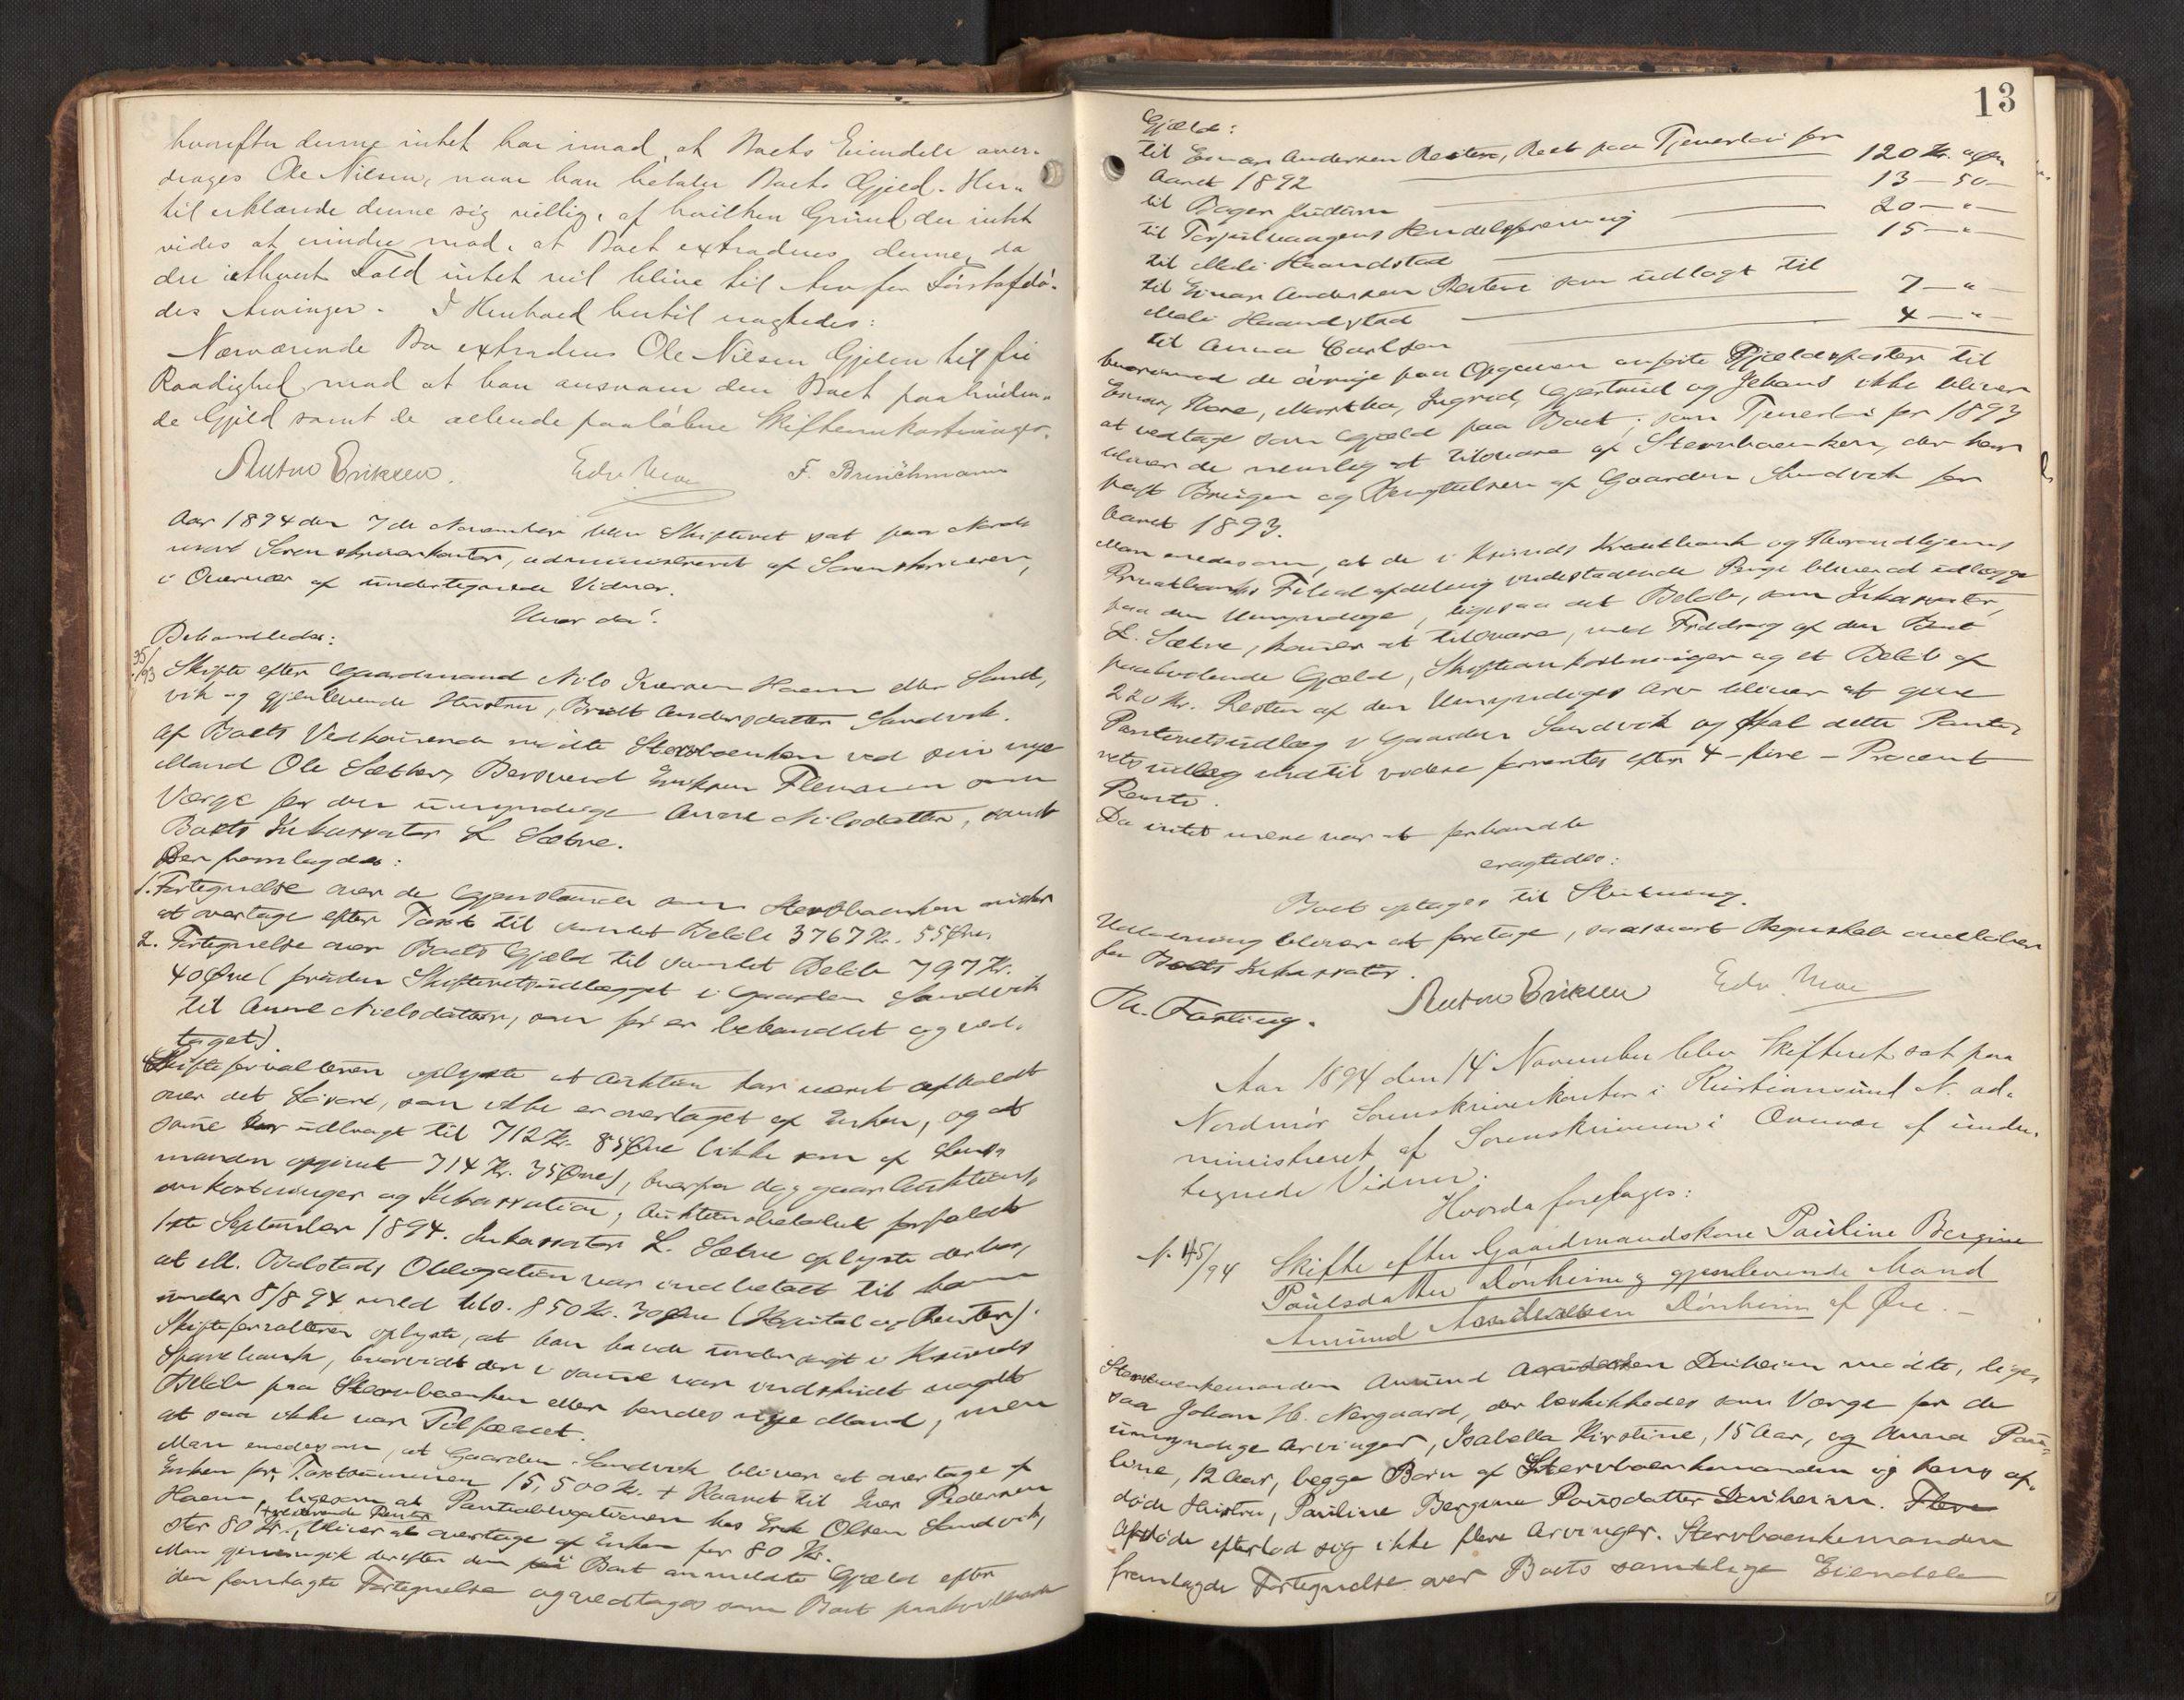 hvorefter denne intet har imod, at Boets Eiendele over-
drages Ole Nilsen, naar han betaler Boets Gjeld. Her-
til erklærede denne sig villig, af hvilken Grund der intet
vides at erindre mod, at Boet extraderes denne, da
der i ethvert Fald intet vil blive til Arv for Førstafdø-
des Arvinger. I Henhold hertil eragtedes:
Nærværende Bo extraderes Ole Nilsen Gjelen til fri
Raadighed mod at han ansvarer den Boet paahvilen-
de Gjeld samt de allerede paaløbne Skifteomkostninger.
Anton Eriksen. Edv. Moe F. Brinchmann
Aar 1894 den 7de November blev Skifteret sat paa Nord-
møre Sorenskriverkontor, administreret af Sorenskriveren,
i Overvær af undertegnede Vidner.
Hvor da:
Behandledes:
35/93 Skifte efter Gaardmand Nils Iversen Haem eller Sand-
vik og gjenlevende Hustru, Brit Andersdatter Sandvik.
Af Boets Vedkommende mødte Stervboenken ved sin nye
Mand Ole Sæther, Bersvend Eriksen Flemmen som
Værge for den umyndige Anne Nilsdatter, samt
Boets Inkassator L. Sætre.
Der fremlagdes:
1. Fortegnelse over de Gjenstande som Stervboenken ønsker
at overtage efter Taxt til samlet Beløb 3767 Kr. 55 Øre.
2. Fortegnelse over Boets Gjæld til samlet Beløb 797 Kr.
40 Øre (foruden Skifteretsudlægget i Gaarden Sandvik
til Anne Nielsdatter, som før er behandlet og ved-
taget)
Skifteforvalteren oplyste at Auktion har været afholdt
over det Løsøre, som ikke er overtaget af Enken, og at
samme har udbragt til 712 Kr. 85 Øre (ikke som af Lens-
manden opgivet 714 Kr. 35 Øre), hvorfor dog gaar Auktions-
omkostninger og Inkassation; Auktionsbeløbet forfaldt
1ste September 1894. Inkassator L. Sætre oplyste derhos,
at M. Bolstads Obligation var indbetalt til ham
under 8/8 94 med tils. 850 Kr. 30 Øre (Kapital og Renter).
Skifteforvalteren oplyste, at han havde undersøgt i Ksunds
Sparebank, hvorvidt der i samme var indskudt noget
Beløb paa Stervboenken eller hendes nye Mand, men
at saa ikke var Tilfældet.
Man enedes om, at Gaarden Sandvik bliver at overtage af
Enken for Taxtsummen 15,500 Kr. + Kaaret til Iver Pedersen
Haem, ligesom at Pantobligationen hos Erik Olsen Sandvik,
stor 80 Kr., + resterende Renter bliver at overtage af Enken for 80 Kr.
Man gjennemgik derefter den i Boet anmeldte Gjæld efter
den fremlagte Fortegnelse og vedtages som Boet paahvilende
13
Gjæld:
til Einar Andersen Resten, Rest paa Tjenerløn for
Aaret 1892 120 Kr. " Øre
til Bager 13 — 50 —
til Handelsforening 20 — " —
til Mali Haandstad 15 — " —
til Einar Andersen Resten som udlagt til
Mali Haandstad 7 — " —
til Anna Carlsen 4 — " —
hvorimod de øvrige paa Opgaven anførte Gjældsposter til
Einar, Hans, Martha, Ingrid, Gjertrud og Johans ikke bliver
at vedtage som Gjæld paa Boet; som Tjenerløn for 1893
bliver de nemlig at tilsvare af Stervboenken, der har
havt Brugen og Benyttelsen af Gaarden Sandvik for
Aaret 1893.
Man enedes om, at de i Ksunds Kreditbank og Throndhjems
Privatbanks Filialafdeling indestaaende Penge bliver at udlægge
paa den Umyndige, ligesaa det Beløb, som Inkassator,
L. Sætre, haver at tilsvare, med Fradrag af den Boet
paahvilende Gjæld, Skifteomkostninger og et Beløb af
220 Kr. Resten af den Umyndiges Arv bliver at give
Panteretsudlæg i Gaarden Sandvik og skal dette Pante-
retsudlæg indtil videre forrentes efter 4 – fire – Procent
Rente.
Da intet mere var at forhandle
eragtedes:
Boet optages til Slutning.
Udlodning bliver at foretage, saasnart Regnskab indløber
fra Boets Inkassator.
Th. Fasting. Anton Eriksen Edv. Moe
Aar 1894 den 14 November blev Skifteret sat paa
Nordmør Sorenskriverkontor i Kristiansund N. ad-
ministreret af Sorenskriveren i Overvær af under-
tegnede Vidner.
Hvorda foretages:
N. 45/94 Skifte efter Gaardmandskone Pauline Bergine
Paulsdatter Dønheim og gjenlevende Mand
Amund Dønheim af Øre. —
Stervboenkemanden Amund Dønheim mødte, lige-
saa Johan H. Nergaard, der beskikkedes som Værge for de
umyndige Arvinger, Isabella Kirstine, 15 Aar, og Anna Pau-
line, 12 Aar, begge Børn af Stervboenkemanden og hans af-
døde Hustru, Pauline Bergine Poulsdatter Dønheim. Flere
Afdøde efterlod sig ikke flere Arvinger. Stervboenkemanden
fremlagde Fortegnelse over Boets samtlige Eiendele